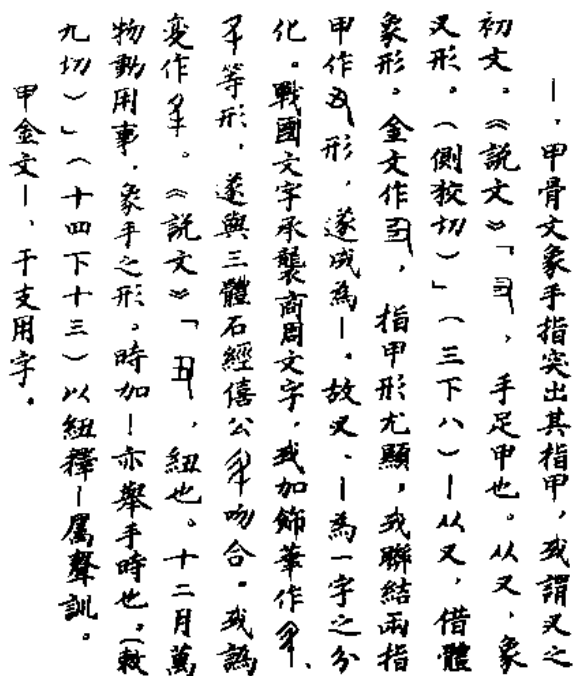 丨，甲骨文象手指突出其指甲，或謂叉之
初文。《說文》「，手足甲也。从又，象
叉形。（側狡切）」（三下八）丨从又，借體
象形。金文作，指甲形尤顯，或聯結兩指
甲作形，遂成為丨。故叉、丨為一字之分
化。戰國文字承襲商周文字，或加飾筆作、
等形，遂與三體石經僖公吻合。或訛
變作。《說文》「丑，紐也。十二月萬
物動用事，象手之形。時加丨亦舉手時也。（敕
九切）」（十四下十三）以紐釋丨屬聲訓。
甲金文丨，干支用字。